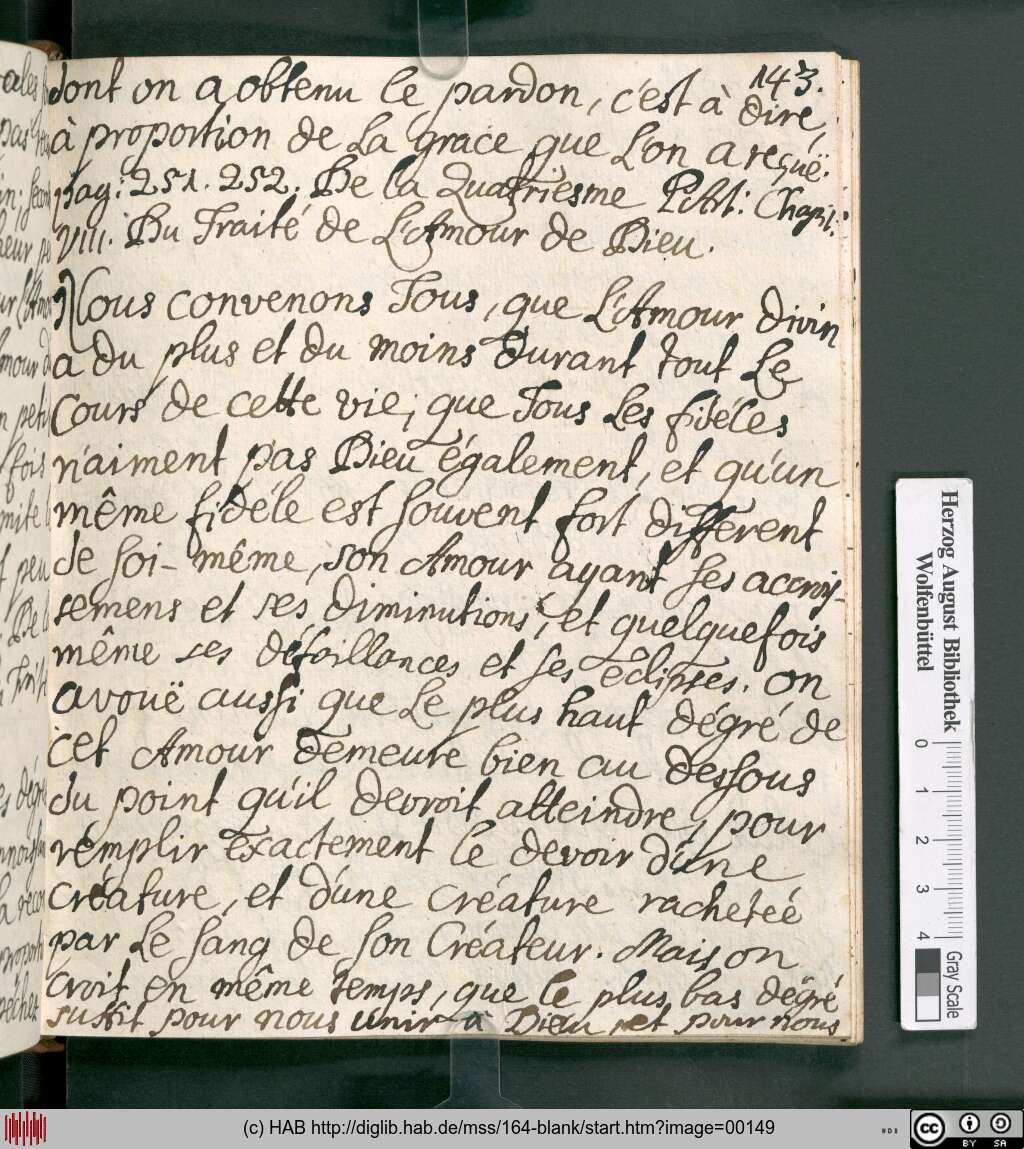 143.
dont on a obtenu le pardon, c'est à dire,
à proportion de La grace que L'on a reçuë.
pag: 251. 252. De la Quatriesme Part: Chapit:
VIII. Du Traité de L'Amour de Dieu.
Nous convenons Tous, que L'Amour divin
a du plus et du moins durant tout Le
Cours de cette vie; que Tous Les fidéles
n'aiment pas Dieu également, et qu'un
même fidéle est souvent fort différent
de soi-même, son Amour ayant ses accrois-
semens et ses diminutions, et quelquefois
même ses défaillances et ses éclipses. On
avouë aussi que Le plus haut dégré de
cet Amour demeure bien au dessous
du point qu'il devroit atteindre, pour
remplir exactement le devoir d'une
créature, et d'une créature racheteé
par Le sang de son Créateur. Mais on
croit en même temps, que le plus bas dégré
suffit pour nous unir à Dieu, et pour nous
Herzog August Bibliothek
Wolfenbüttel
0 1 2 3 4
Gray Scale
(c) HAB http://diglib.hab.de/mss/164-blank/start.htm?image=00149
cc BY SA